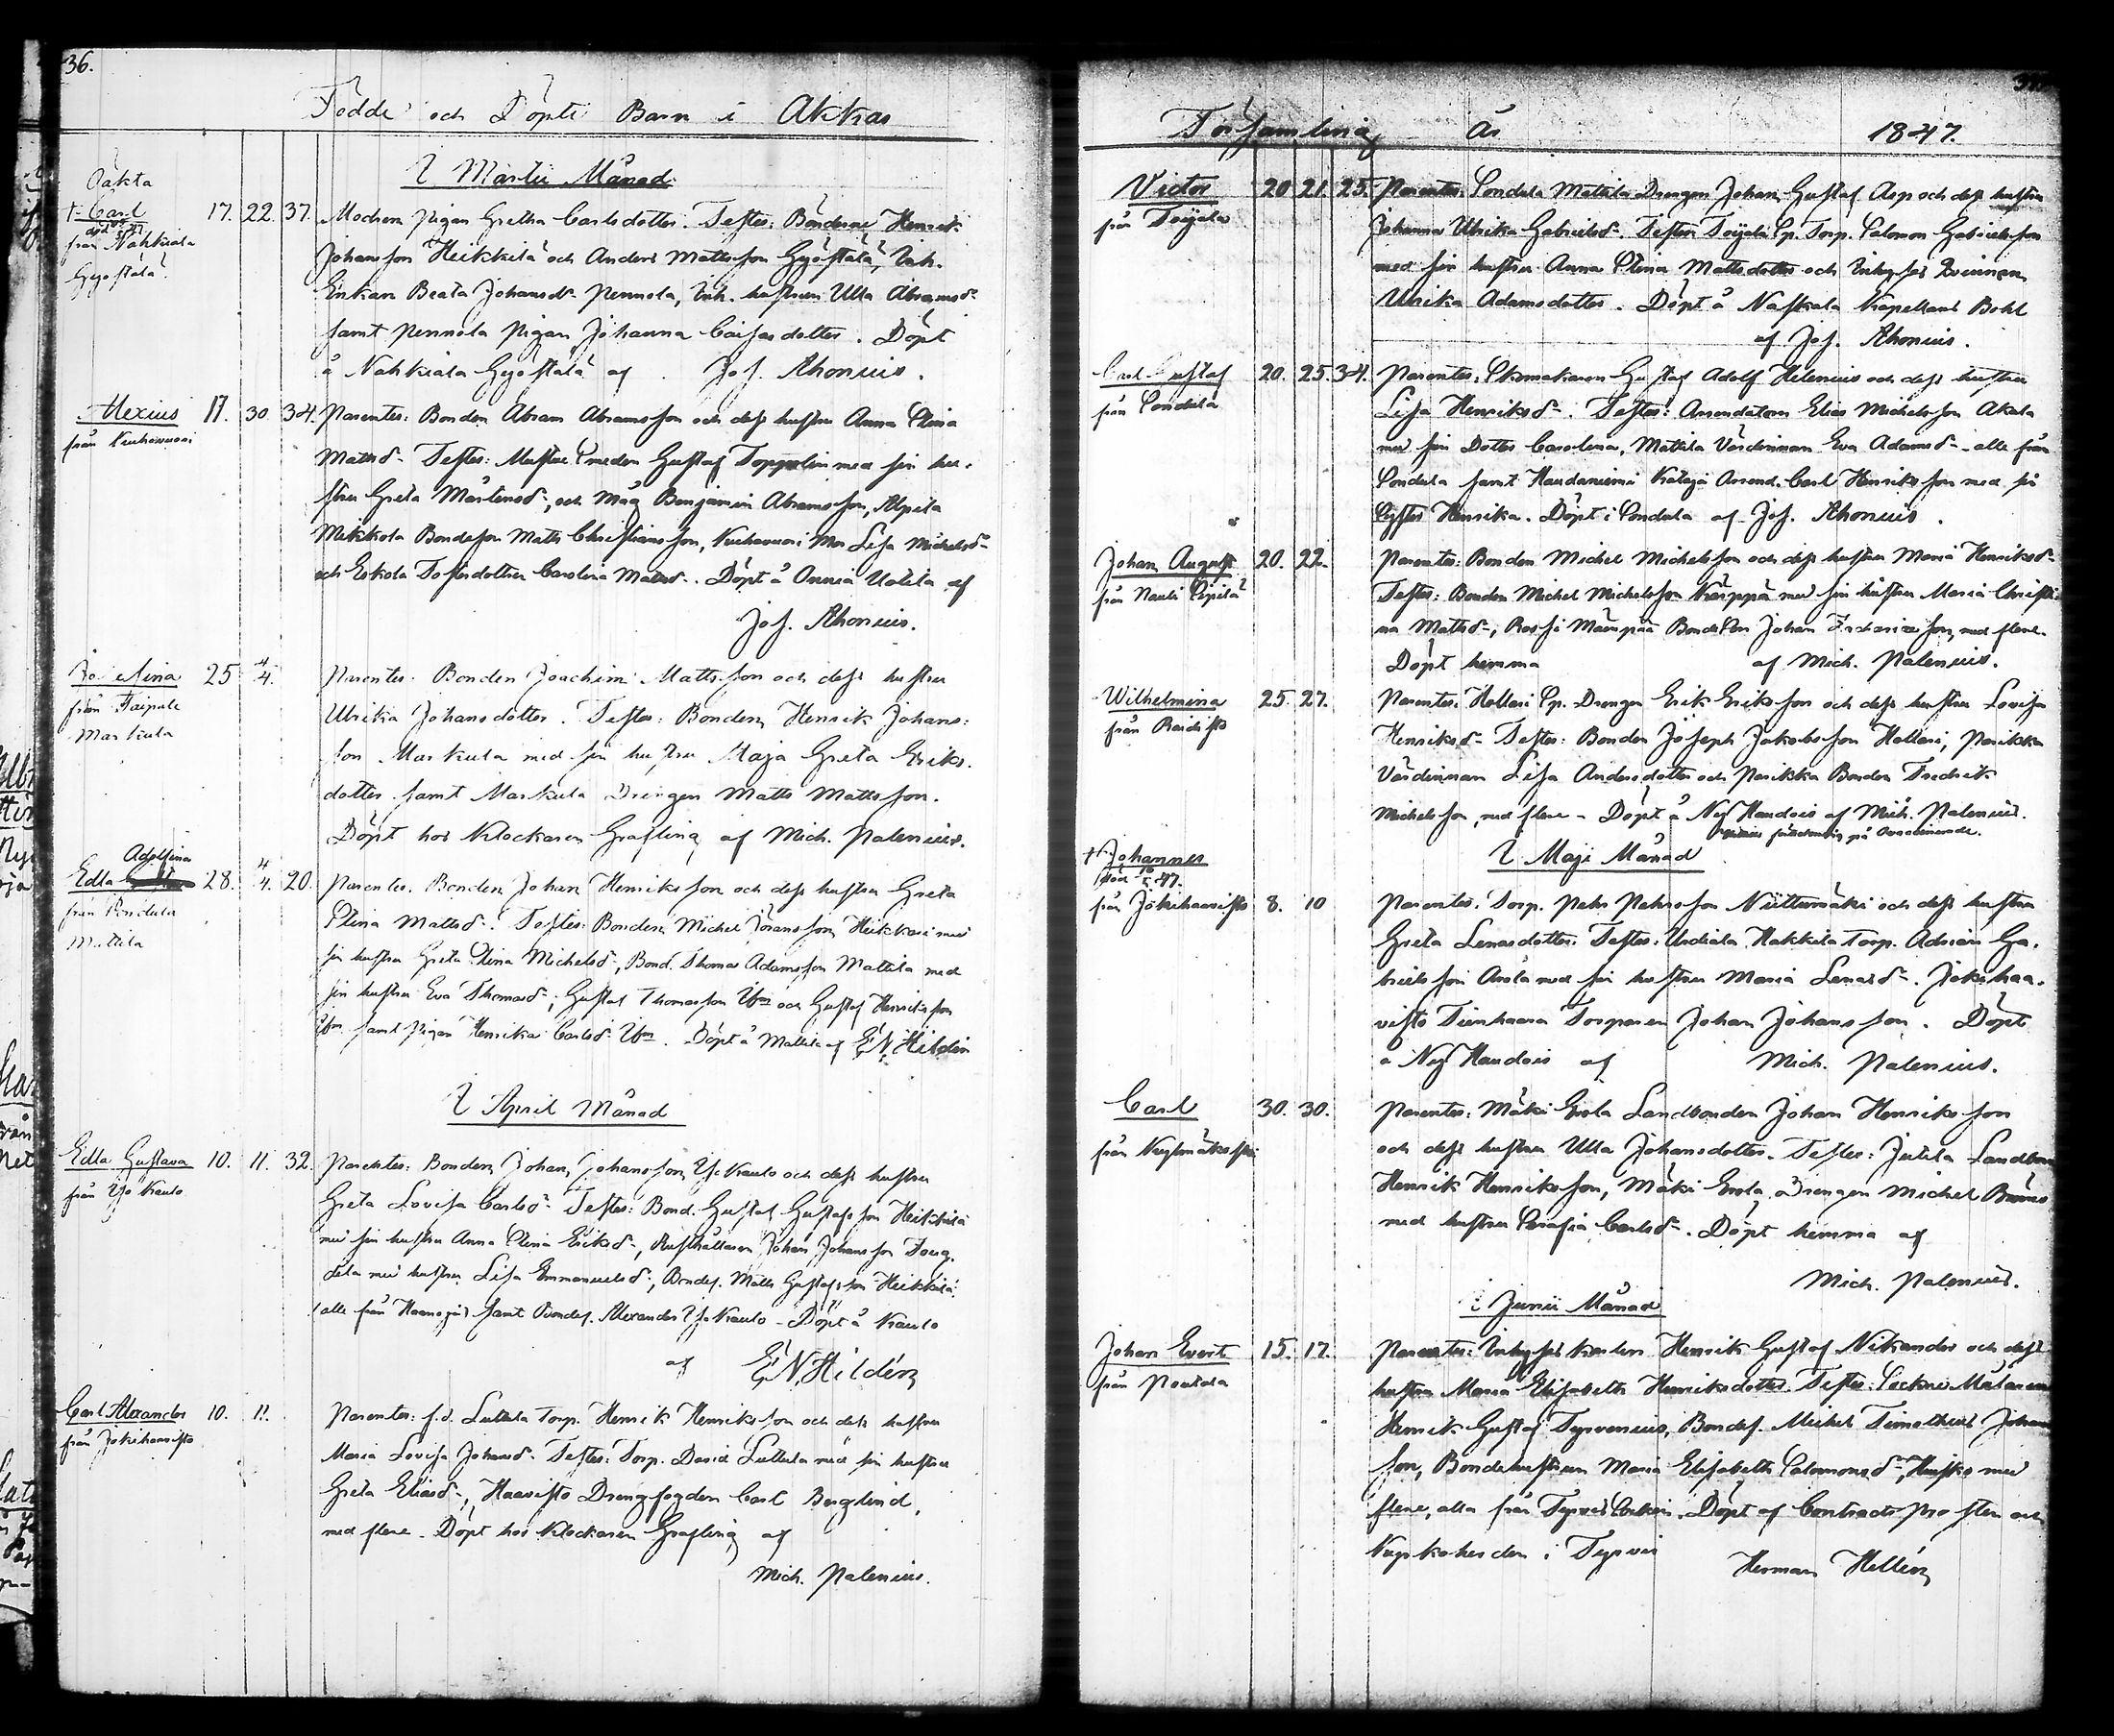 36.
Födde och Döpte Barn i Akkas
I Martii Månad
Oäkta
+ Carl 17. 22. 37. Modren pigan Gretha Carlsdotter. Testes: Bönderne Henrik
från Nahkiala Johansson Heikkilä och Anders Mattsson Gyöstälä, Inh.
Gyöstälä. Enkan Beata Johansdr Pennola, Inh. hustrun Ulla Abramsdr
samt Pennola pigan Johanna Caisasdotter. Döpt
å Nahkiala Gyöstälä af Jos. Ahonius.
Alexius 17. 30. 34. Parentes: Bonden Abram Abramsson och dess hustru Anna Stina
från Kuckovuori Mattsdr Testes: Gustaf Toppelin med sin hu-
stru Greta Mårtensdr, och Måg Benjamin Abramsson, Alpila
Mikkola Bondeson Matts Christiansson, Lisa Michelsdr
och Eskola Carolina Mattsdr. Döpt å Onnia Uotila af
Jos. Ahonius.
25 4/4. Parentes: Bonden Joachim Mattsson och dess hustru
från Taipale Ulrika Johansdotter. Testes: Bonden Henrik Johans-
Markula son Markula med sin hustru Maja Greta Eriks-
dotter samt Markula Drengen Matts Mattsson.
Döpt hos Klockaren Grafling af Mich. Palenius.
Adolfina
Edla 28. 4/4. 20. Parentes. Bonden Johan Henriksson och dess hustru Greta
från Sondula Stina Mattsdr. Testes: Bonden Michel Göransson Heikkari med
Mattila sin hustru Greta Stina Michelsdr, Bond. Thomas Adamsson Mattila med
sin hustru Eva Thomasdr, Gustaf Thomasson Ibm och Gustaf Henriksson
Ibm samt pigan Henrika Carlsdr Ibm. Döpt å Mattila af E.N. Hildén
I April Månad
Edla Gustava 10. 11. 32. Parentes: Bonden Johan Johansson Yli Kauto och dess hustru
från Yli Kauto Greta Lovisa Carlsdr Testes: Bond. Gustaf Gustafsson Heikkilä
med sin hustru Anna Stina Eriksdr, Rusthållaren Johan Johansson
med hustru Lisa Emmanuelsdr, Bondes. Matts Gustafsson Heikkilä
(alle från samt Bondes. Alexander Yli Kauto - Döpt å Kauto
af E.N. Hildén
Carl Alexander 10. 11. Parentes: f.d. Luttula Torp. Henrik Henriksson och dess hustru
från Jokihaavisto Maria Lovisa Johansdr Testes: Torp. David Luttula med sin hustru
Greta Eliasdr, Haavisto Drengfogden Carl Berglind,
med flere. Döpt hos Klockaren Grafling af
Mich. Palenius.
Församling År 1847.
Victor 20 21. 25. Parentes: Sondula Mattila Drengen Johan Gustaf Asp och dess hustru
från Toijala Johanna Ulrika Gabrielsdr. Testes Toijala Sp. Torp. Salomon Gabrielsson
med sin hustru Anna Stina Mattsdotter och Inhyses Qvinnan
Ulrika Adamsdotter. Döpt å Naskala Kapellans Bohl
af Jos. Ahonius.
Carl Gustaf 20. 25. 34. Parentes: Skomakaren Gustaf Adolf Helenius och dess hustru
från Sondula Lisa Henriksdr. Testes: Arrendatorn Elias Michelsson Akala
med sin Dotter Carolina, Mattila Värdinnan Eva Adamsdr alle från
Sondula samt Haudaniemi Kataja Arrend. Carl Henriksson med sin
Syster Henrika. Döpt i Sondula af Jos. Ahonius.
Johan August 20. 22. Parentes: Bonden Michel Michelsson och dess hustru Maria Henriksdr
från Nauli Sipilä Testes: Bonden Michel Michelsson Kärppä med sin hustru Maria Christi-
na Mattsdr, Rossi Bondeson Johan Fredriksson med flere.
Döpt hemma af Mich. Palenius.
Wilhelmina 25. 27. Parentes: Holleri Sp. Drengen Erik Eriksson och dess hustru Lovisa
från Henriksdr. Testes: Bonden Joseph Jakobsson Holleri, Parikka
Värdinnan Lisa Andersdotter och Parikka Bonden Fredrik
Michelsson, med flere - Döpt å Nyj Handois af Mich. Palenius.
+ Johannes I Maji Månad
från Jokihaavisto 8. 10 Parentes: Torp. Pehr Pehrsson Niittumäki och dess hustru
Greta Lenasdotter. Testes: Urdiala Hakkila Torp. Adrian Ga-
brielsson Anola med sin hustru Maria Lenasdr. Jokihaa-
visto Torparen Johan Johansson. Döpt
å Nyj Handois af Mich. Palenius.
Carl 30. 30. Parentes: Mäki Erola Landbonden Johan Henriksson
från och dess hustru Ulla Johansdotter. Testes: Jutila Landbon
Henrik Henriksson, Mäki Erola Drengen Michel
med hustru Serafia Carlsdr. Döpt hemma af
Mich. Palenius.
i Junii Månad
Johan Evert 15. 17. Parentes: Inhyses karlen Henrik Gustaf Nikander och dess
från Pentola hustru Maria Elisabeth Henriksdotter. Testes: Sockne Målaren
Henrik Gustaf Tyrvenius, Bondes. Michel Timotheus Johans
son, Bondehustrun Maria Elisabeth Salomonsdr, med
flere, alla från Tyrvis Socken. Döpt af Contracts Prosten och
Kyrkoherden i Tyrvis Herman Hellén